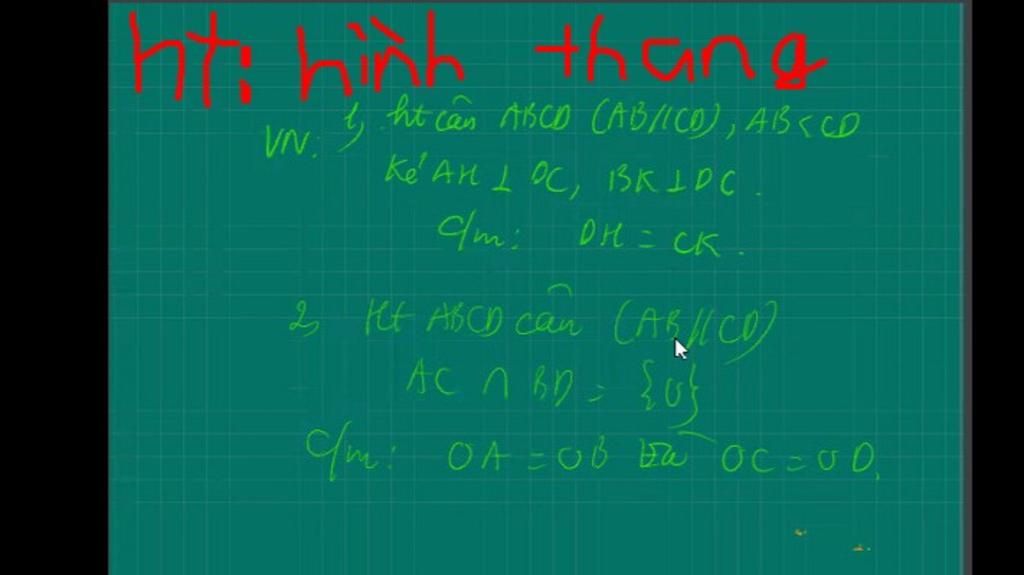 ht: hình thang
VN: 1, ht cân ABCD (AB//CD), AB < CD
Kẻ AH ⊥ DC, BK ⊥ DC.
C/m: DH = CK.
2, Ht ABCD cân (AB//CD)
AC ∩ BD = {O}
C/m: OA = OB và OC = OD.